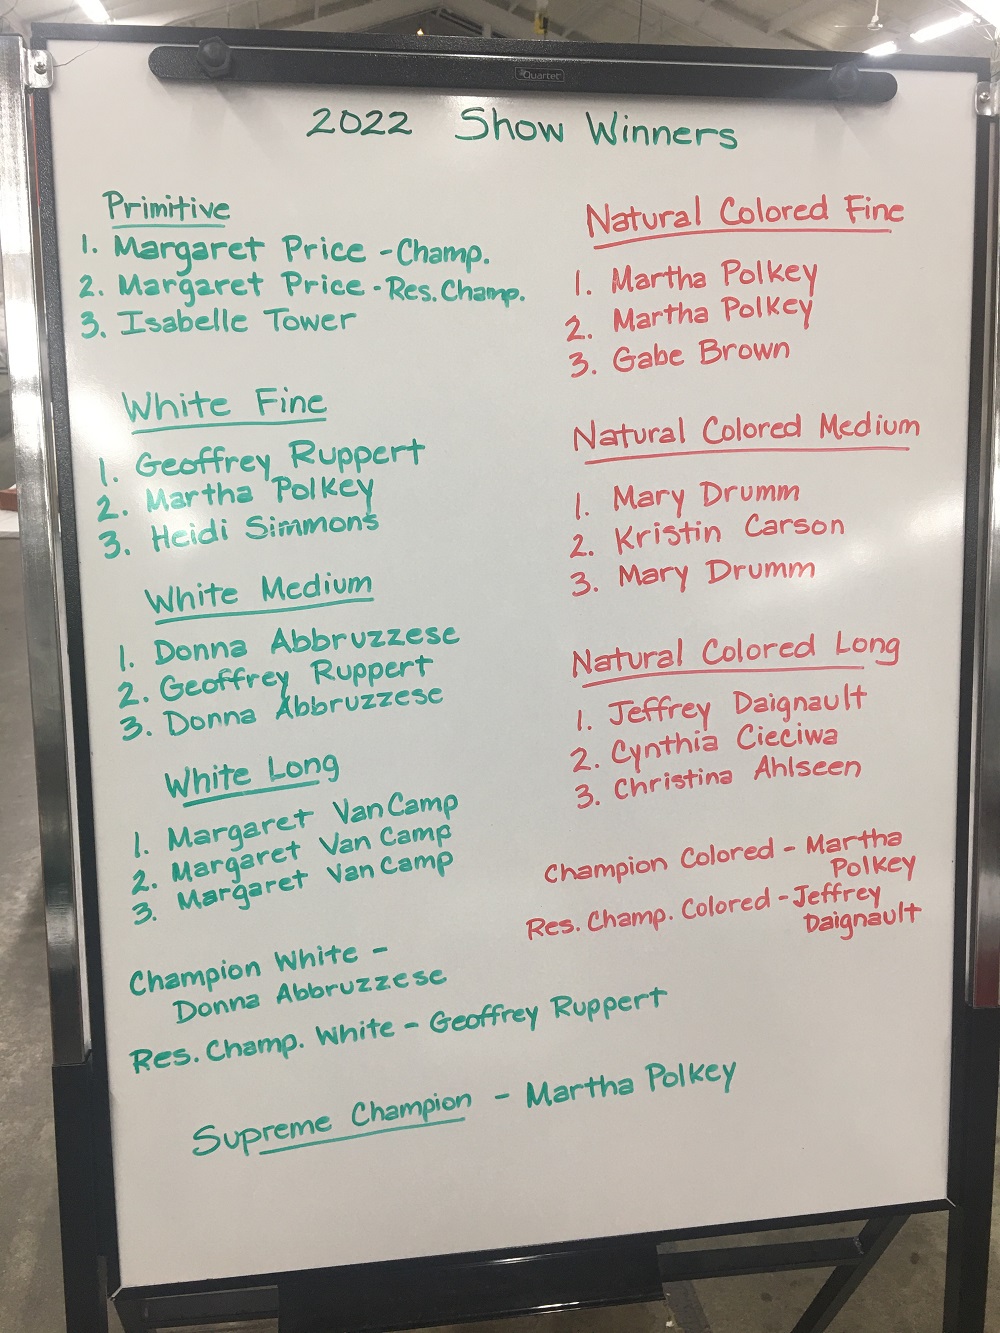 Quartet
2022 Show Winners
Primitive
1. Margaret Price - Champ.
2. Margaret Price - Res. Champ.
3. Isabelle Tower
White Fine
1. Geoffrey Ruppert
2. Martha Polkey
3. Heidi Simmons
White Medium
1. Donna Abbruzzese
2. Geoffrey Ruppert
3. Donna Abbruzzese
White Long
1. Margaret Van Camp
2. Margaret Van Camp
3. Margaret Van Camp
Champion White -
Donna Abbruzzese
Res. Champ. White - Geoffrey Ruppert
Natural Colored Fine
1. Martha Polkey
2. Martha Polkey
3. Gabe Brown
Natural Colored Medium
1. Mary Drumm
2. Kristin Carson
3. Mary Drumm
Natural Colored Long
1. Jeffrey Daignault
2. Cynthia Cieciwa
3. Christina Ahlseen
Champion Colored - Martha
Polkey
Res. Champ. Colored - Jeffrey
Daignault
Supreme Champion - Martha Polkey